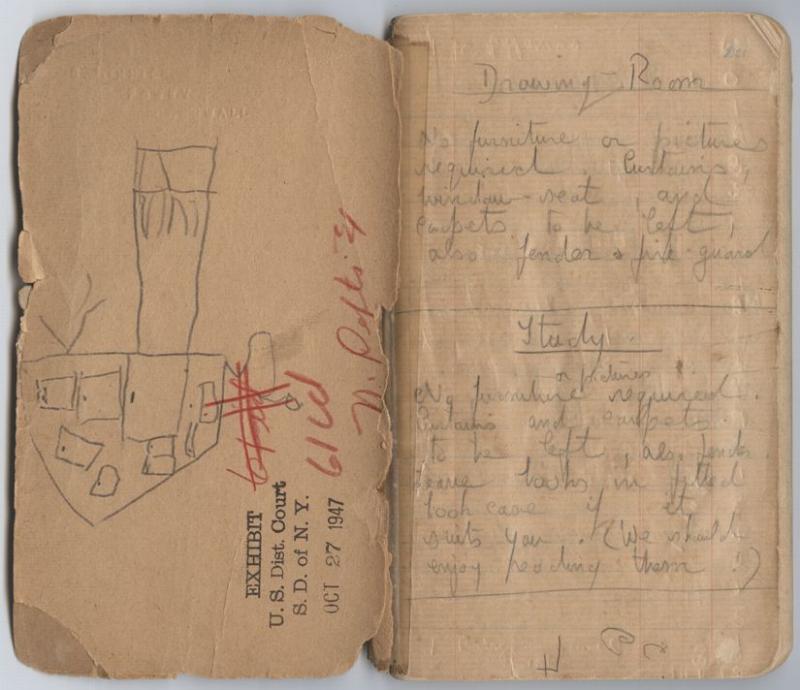 EXHIBIT
U. S. Dist. Court
S. D. of N. Y.
OCT 27 1947
61 cd
Drawing-Room
No furniture or pictures
required. Curtains,
window-seat, and
carpets to be left,
also fender & fire-guard
Study.
or pictures
No furniture required.
Curtains and carpets
to be left, also fender.
Leave books in fitted
book case if it
suits you. (We should
enjoy reading them!)